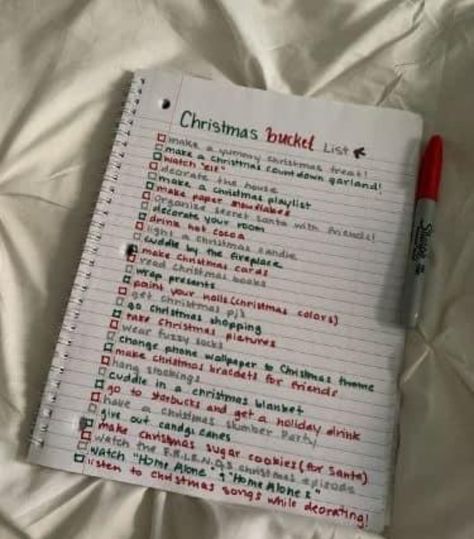 Christmas bucket List
make a yummy christmas treat!
make a christmas countdown garland!
watch "elf"
decorate the house
make a christmas playlist
make paper snowflakes
organize secret santa with friends!
decorate your room
drink hot cocoa
light a christmas candle
cuddle by the fireplace
make christmas cards
read christmas books
wrap presents
paint your nails (christmas colors)
get christmas pjs
go christmas shopping
take christmas pictures
wear fuzzy socks
change phone wallpaper to christmas theme
make christmas bracelets for friends
hang stockings
cuddle in a christmas blanket
go to starbucks and get a holiday drink
have a christmas slumber party
give out candy canes
make christmas sugar cookies (for santa)
watch the F.R.I.E.N.D.S christmas episode
watch "Home Alone" & "Home Alone 2"
listen to christmas songs while decorating!
Sharpie